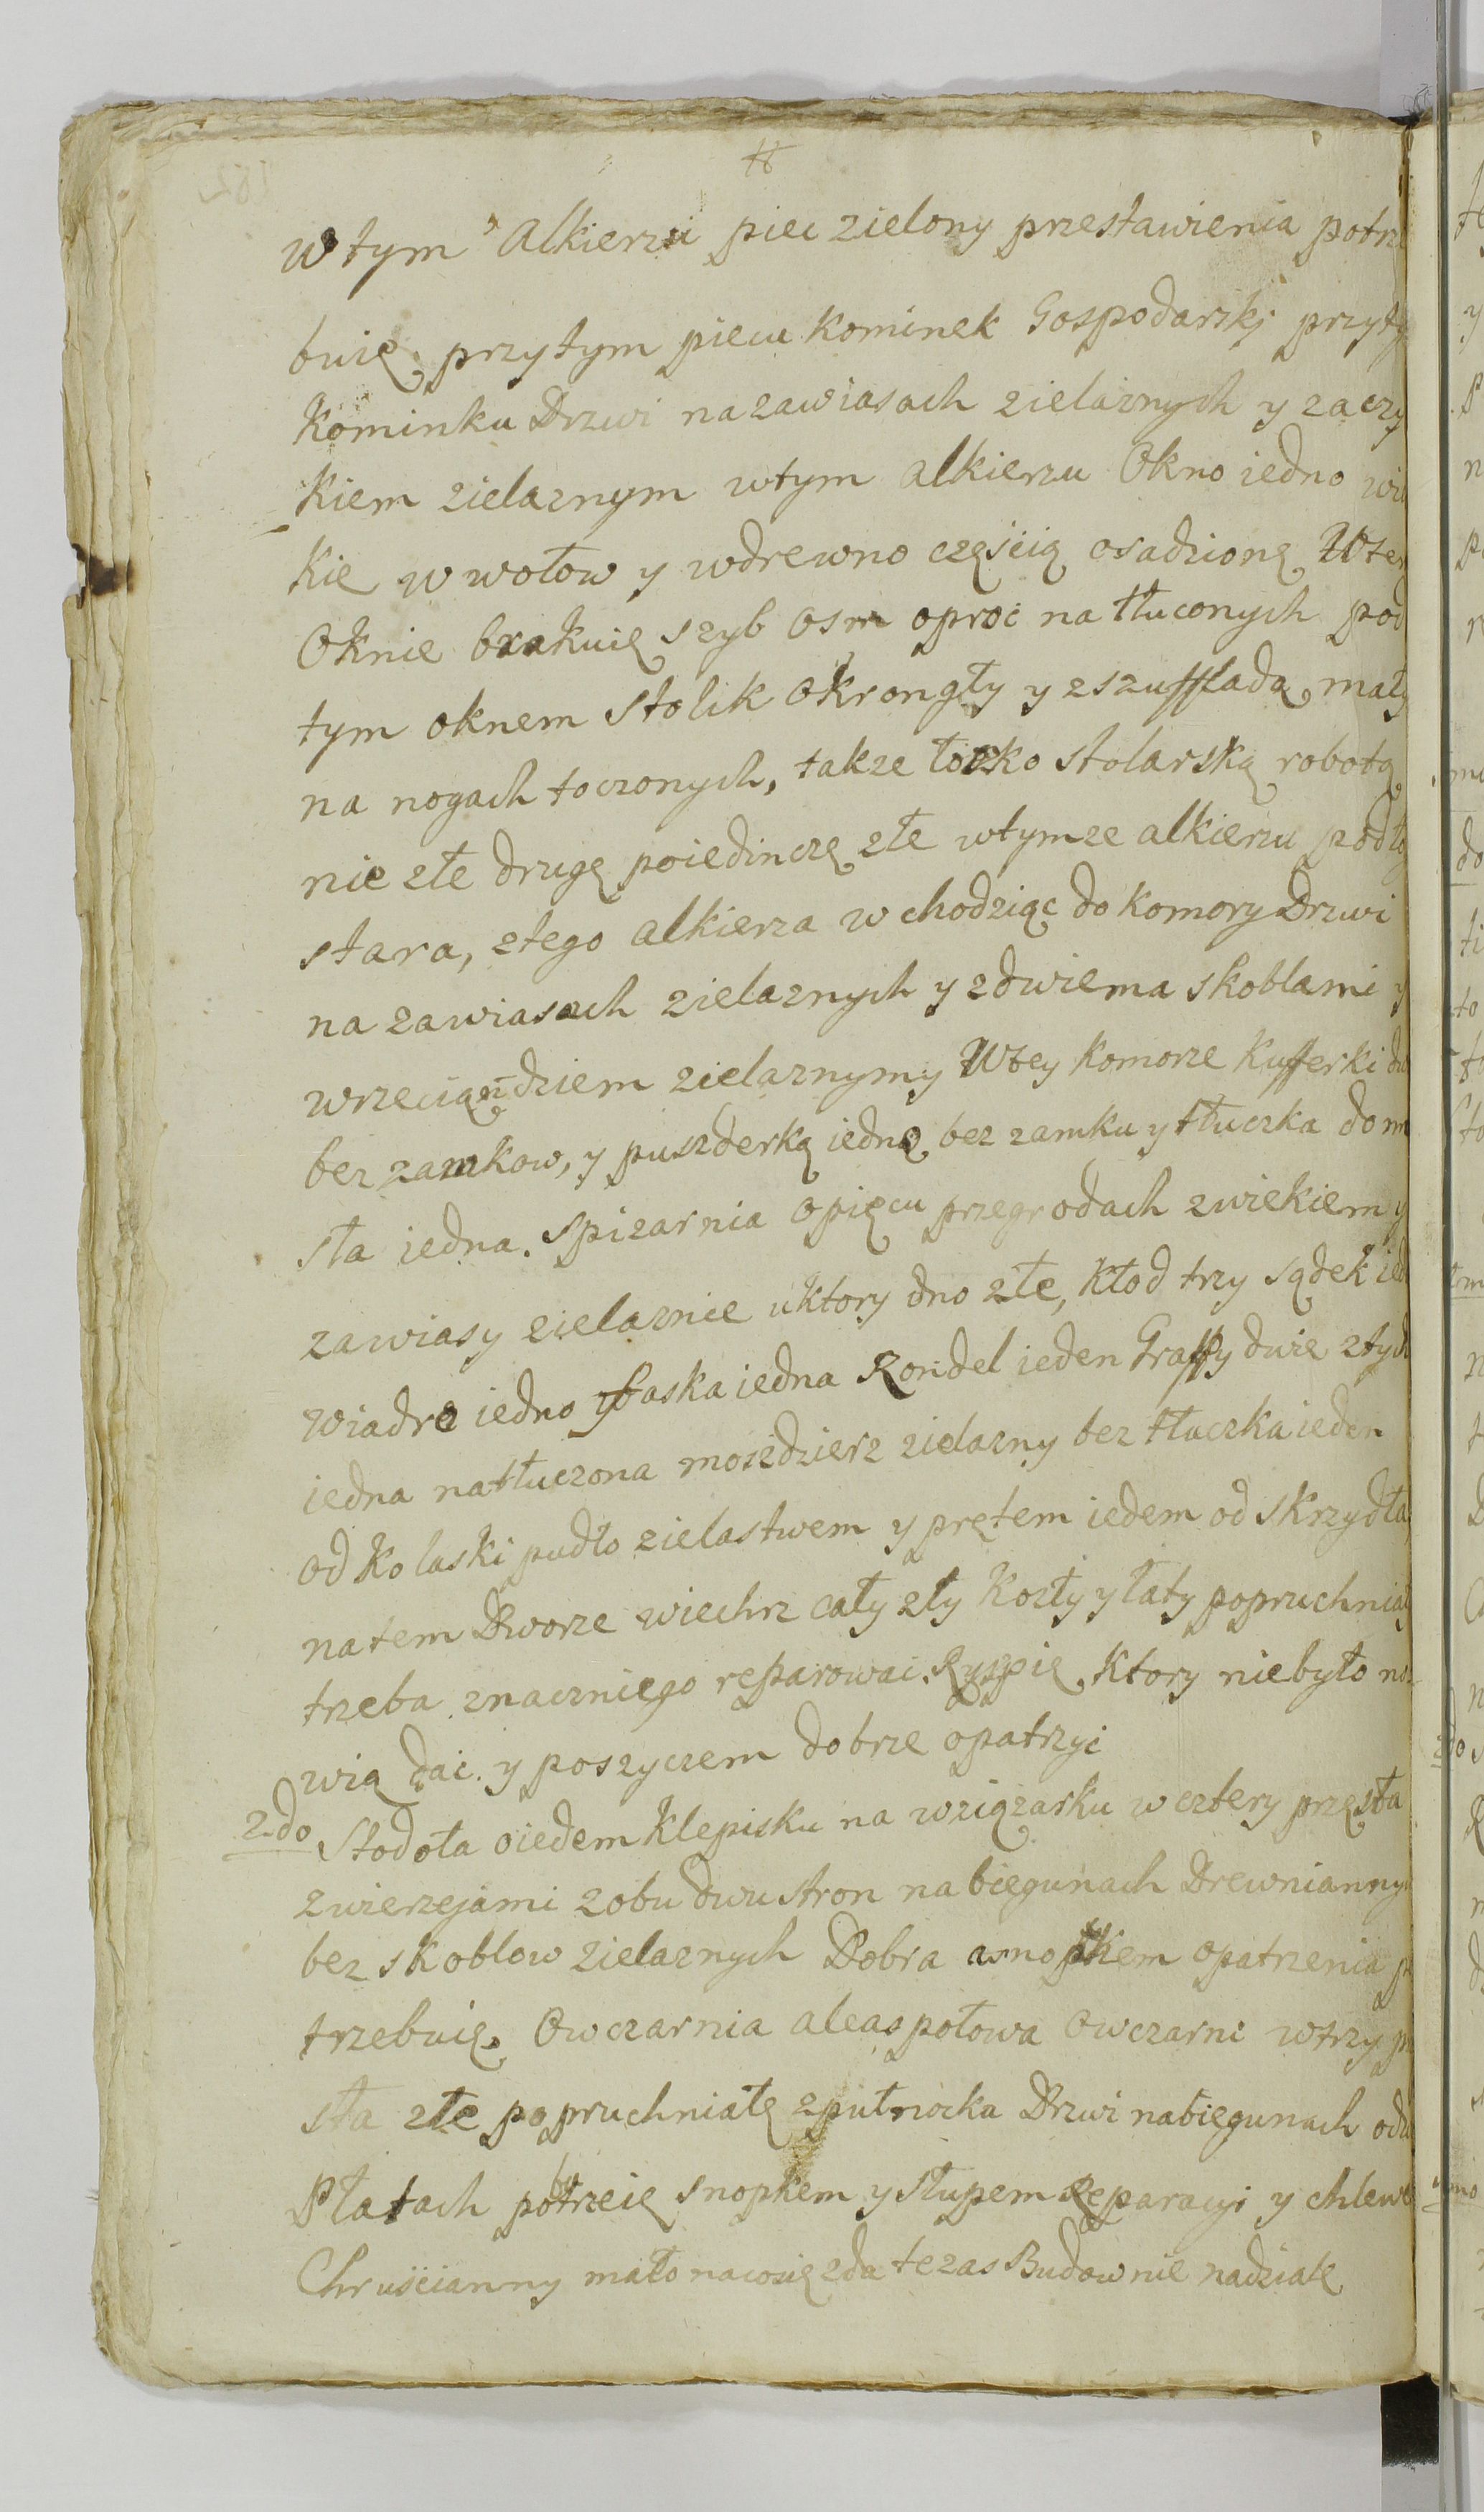 w tym Alkierzu piec zielony przestawienia potrz
buię, przy tym piecu Kominek Gospodarskj przyty
Kominku Drzwi na zawiasach zielaznych y zaczy
Kiem zielaznym wtym alkierzu Okno iedno wi
Kie w wołow y wdrewno częścią osadzionę Wtey
Oknie brakuię szyb Osm oproć na tłuconych pod
tym oknem stolik Okrongły y zszufflada, mały
na nogach toczonych, takze łozko stolarską robotą
nie złe drugę poiedinczę złe wtymze alkierzu podło
stara, ztego alkierza w chodziąc do Komory Drzwi
na zawiasach zielaznych y zdwiema skoblami y
wrzeciąńdziem zielaznymy Wtey Komorze Kufferki dw
bez zamkow, y puszderką iedną bez zamku y tłuczka do m
sła iedna. spizarnia opięcu przegrodach zwiekiem y
zawiasy zielaznie uktory dno złe, Kłod trzy sądek ied
Wiadro iedno y faska iedna Rondel ieden Graffy dwie ztych
iedna natłuczona moszdzierz zielazny bez tłuczka ieden
od Kolaski pudło zielastwem y prętem iedem od skrzydła
natem Dworze wiechrz cały zły Kozły y łaty popruchniał
trzeba znaczniego reparować. Ryspię, Ktory niebyło no
wią dać. y poszyczem dobrze opatrzyć
2do Stodoła oiedem Klepisku na wziązarku w cztery przęsła
zwierzejami zobu dwu stron na biegunach Drewnianny
bez skoblow zielaznych Dobra asnopkem opatrzenia p
trzebuię. Owczarnia aleas połowa Owczarni wtrzy p
sła złe popruchniałę zpułnocka Drzwi nabiegunach od
Płatach potrzebuię snopkem y słupem Reparacyi y chlewe
Chruścianny mało nacosię zda tezas Budownie nadziałę